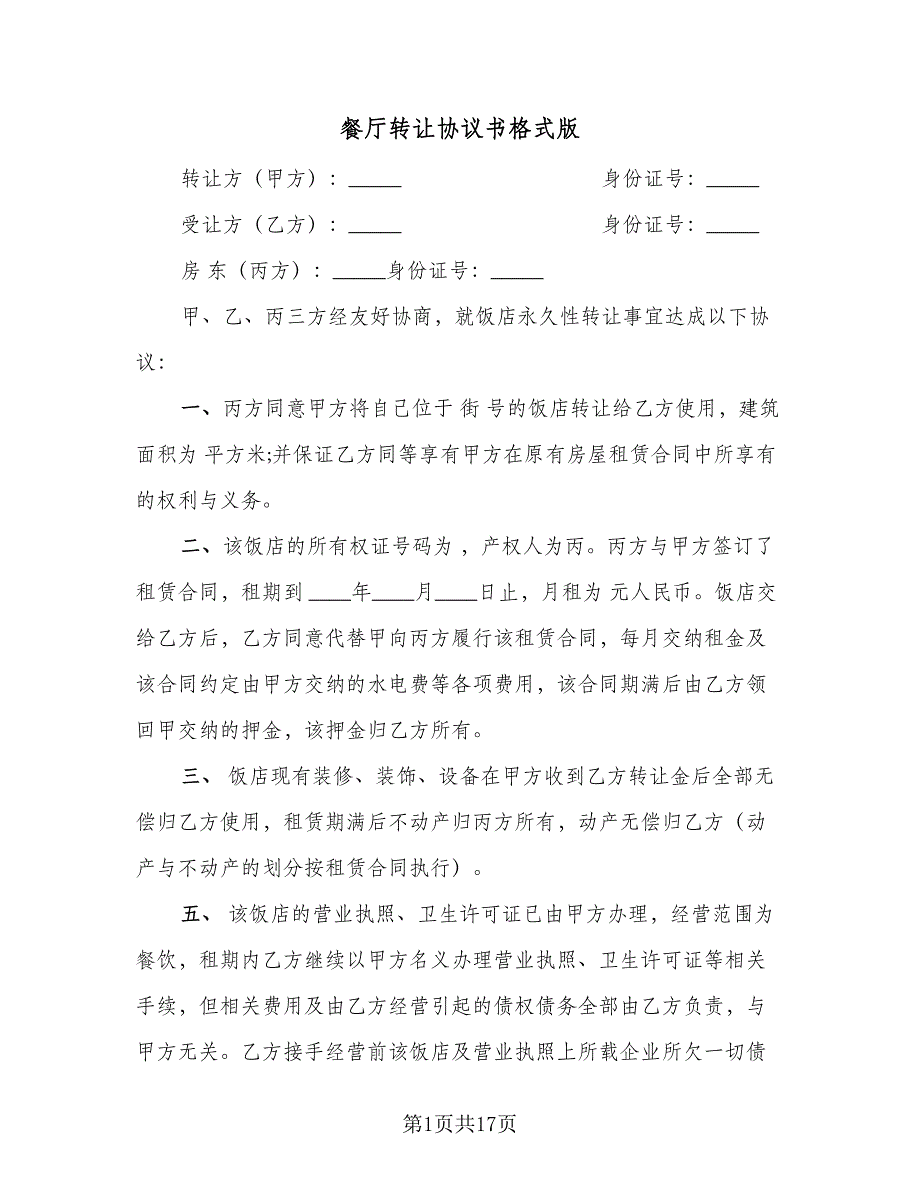 餐厅转让协议书格式版
转让方（甲方）：_____ 身份证号：_____
受让方（乙方）：_____ 身份证号：_____
房 东（丙方）：_____身份证号：_____
甲、乙、丙三方经友好协商，就饭店永久性转让事宜达成以下协
议：
一、丙方同意甲方将自己位于 街 号的饭店转让给乙方使用，建筑
面积为 平方米;并保证乙方同等享有甲方在原有房屋租赁合同中所享有
的权利与义务。
二、该饭店的所有权证号码为 ，产权人为丙。丙方与甲方签订了
租赁合同，租期到 ____年____月____日止，月租为 元人民币。饭店交
给乙方后，乙方同意代替甲向丙方履行该租赁合同，每月交纳租金及
该合同约定由甲方交纳的水电费等各项费用，该合同期满后由乙方领
回甲交纳的押金，该押金归乙方所有。
三、 饭店现有装修、装饰、设备在甲方收到乙方转让金后全部无
偿归乙方使用，租赁期满后不动产归丙方所有，动产无偿归乙方（动
产与不动产的划分按租赁合同执行）。
五、 该饭店的营业执照、卫生许可证已由甲方办理，经营范围为
餐饮，租期内乙方继续以甲方名义办理营业执照、卫生许可证等相关
手续，但相关费用及由乙方经营引起的债权债务全部由乙方负责，与
甲方无关。乙方接手经营前该饭店及营业执照上所载企业所欠一切债
第1页共17页